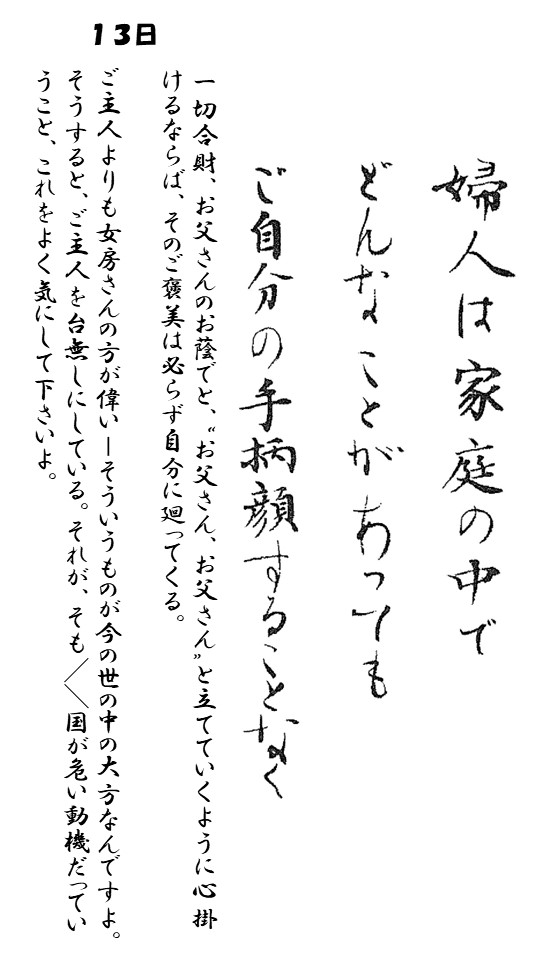 13日
婦人は家庭の中で
どんなことがあっても
ご自分の手柄顔することなく
一切合財、お父さんのお蔭でと、“お父さん、お父さん”と立てていくように心掛
けるならば、そのご褒美は必らず自分に廻ってくる。
ご主人よりも女房さんの方が偉い―そういうものが今の世の中の大方なんですよ。
そうすると、ご主人を台無しにしている。それが、そも〳〵国が危い動機だってい
うこと、これをよく気にして下さいよ。